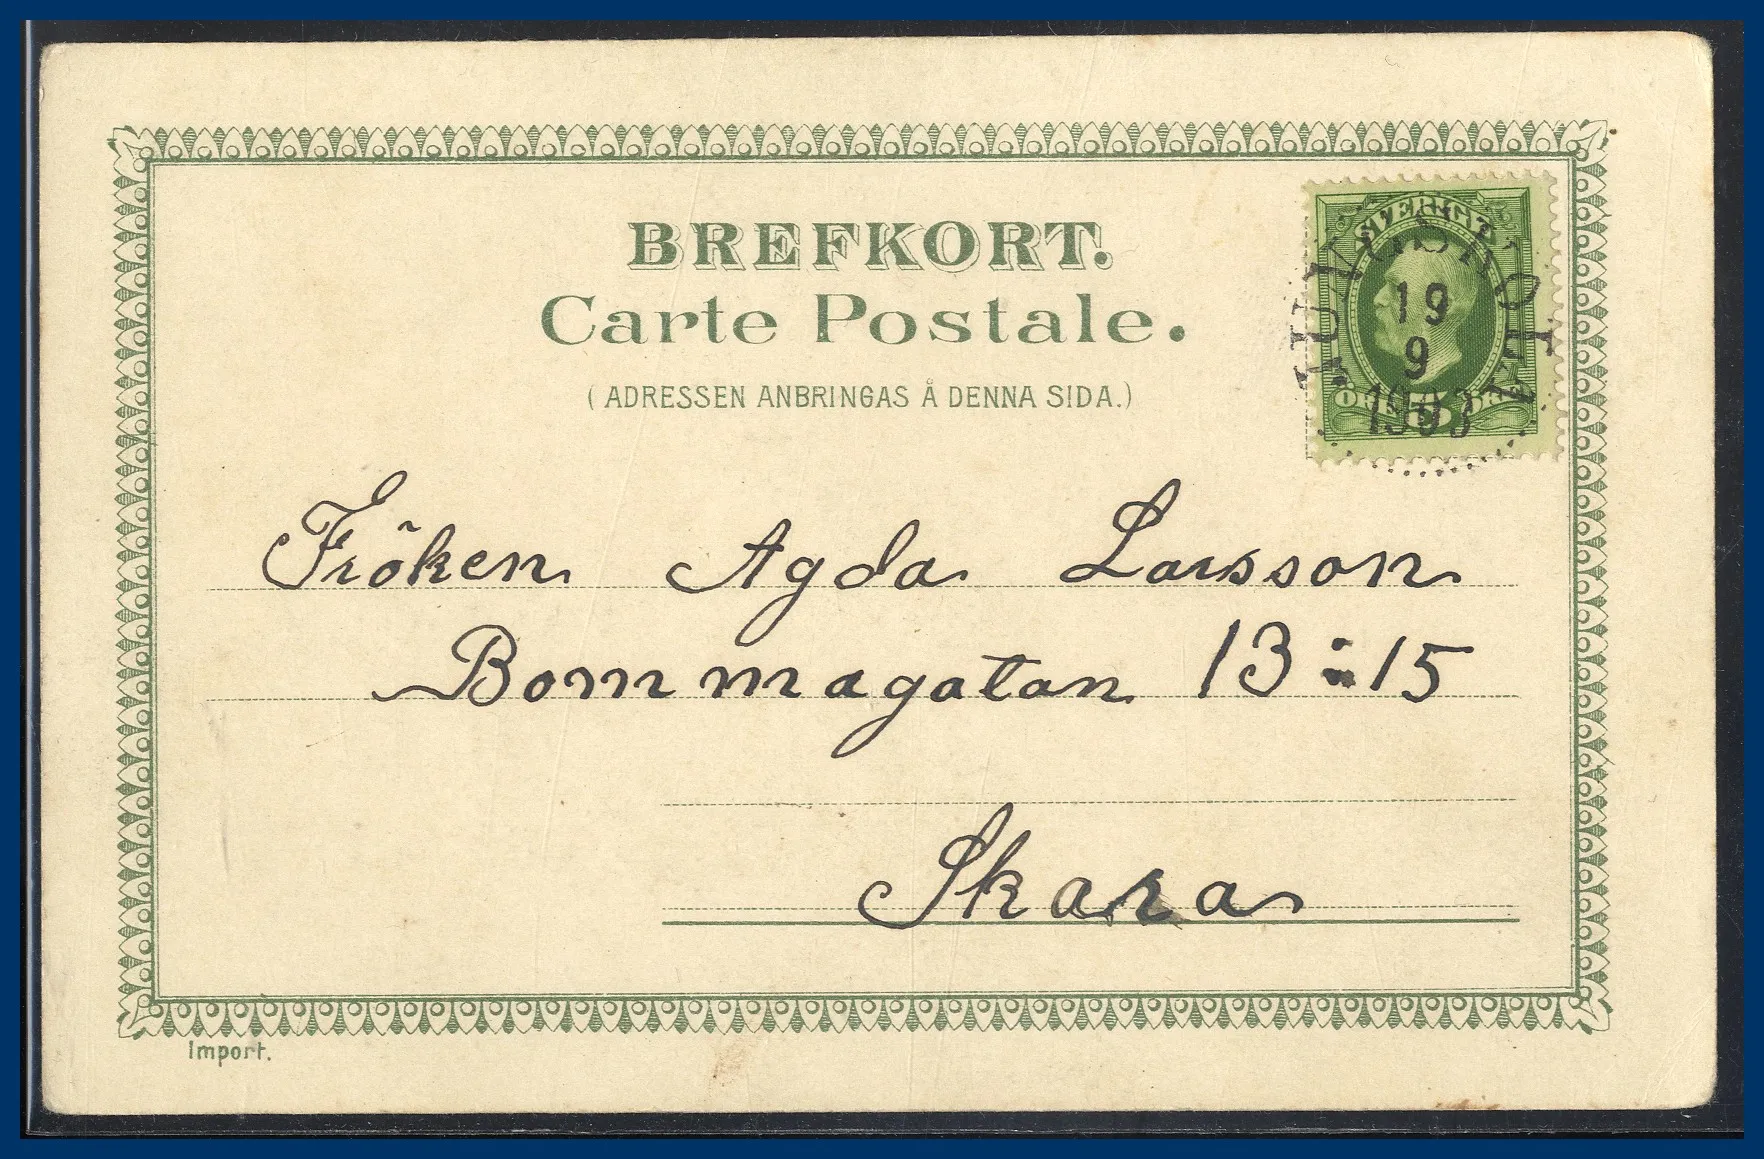 BREFKORT.
Carte Postale.
(ADRESSEN ANBRINGAS Å DENNA SIDA.)
SVERIGE
19
9
1903
ÖRE 5 ÖRE
Fröken Agda Larsson
Bommagatan 13 - 15
Skara
Import.